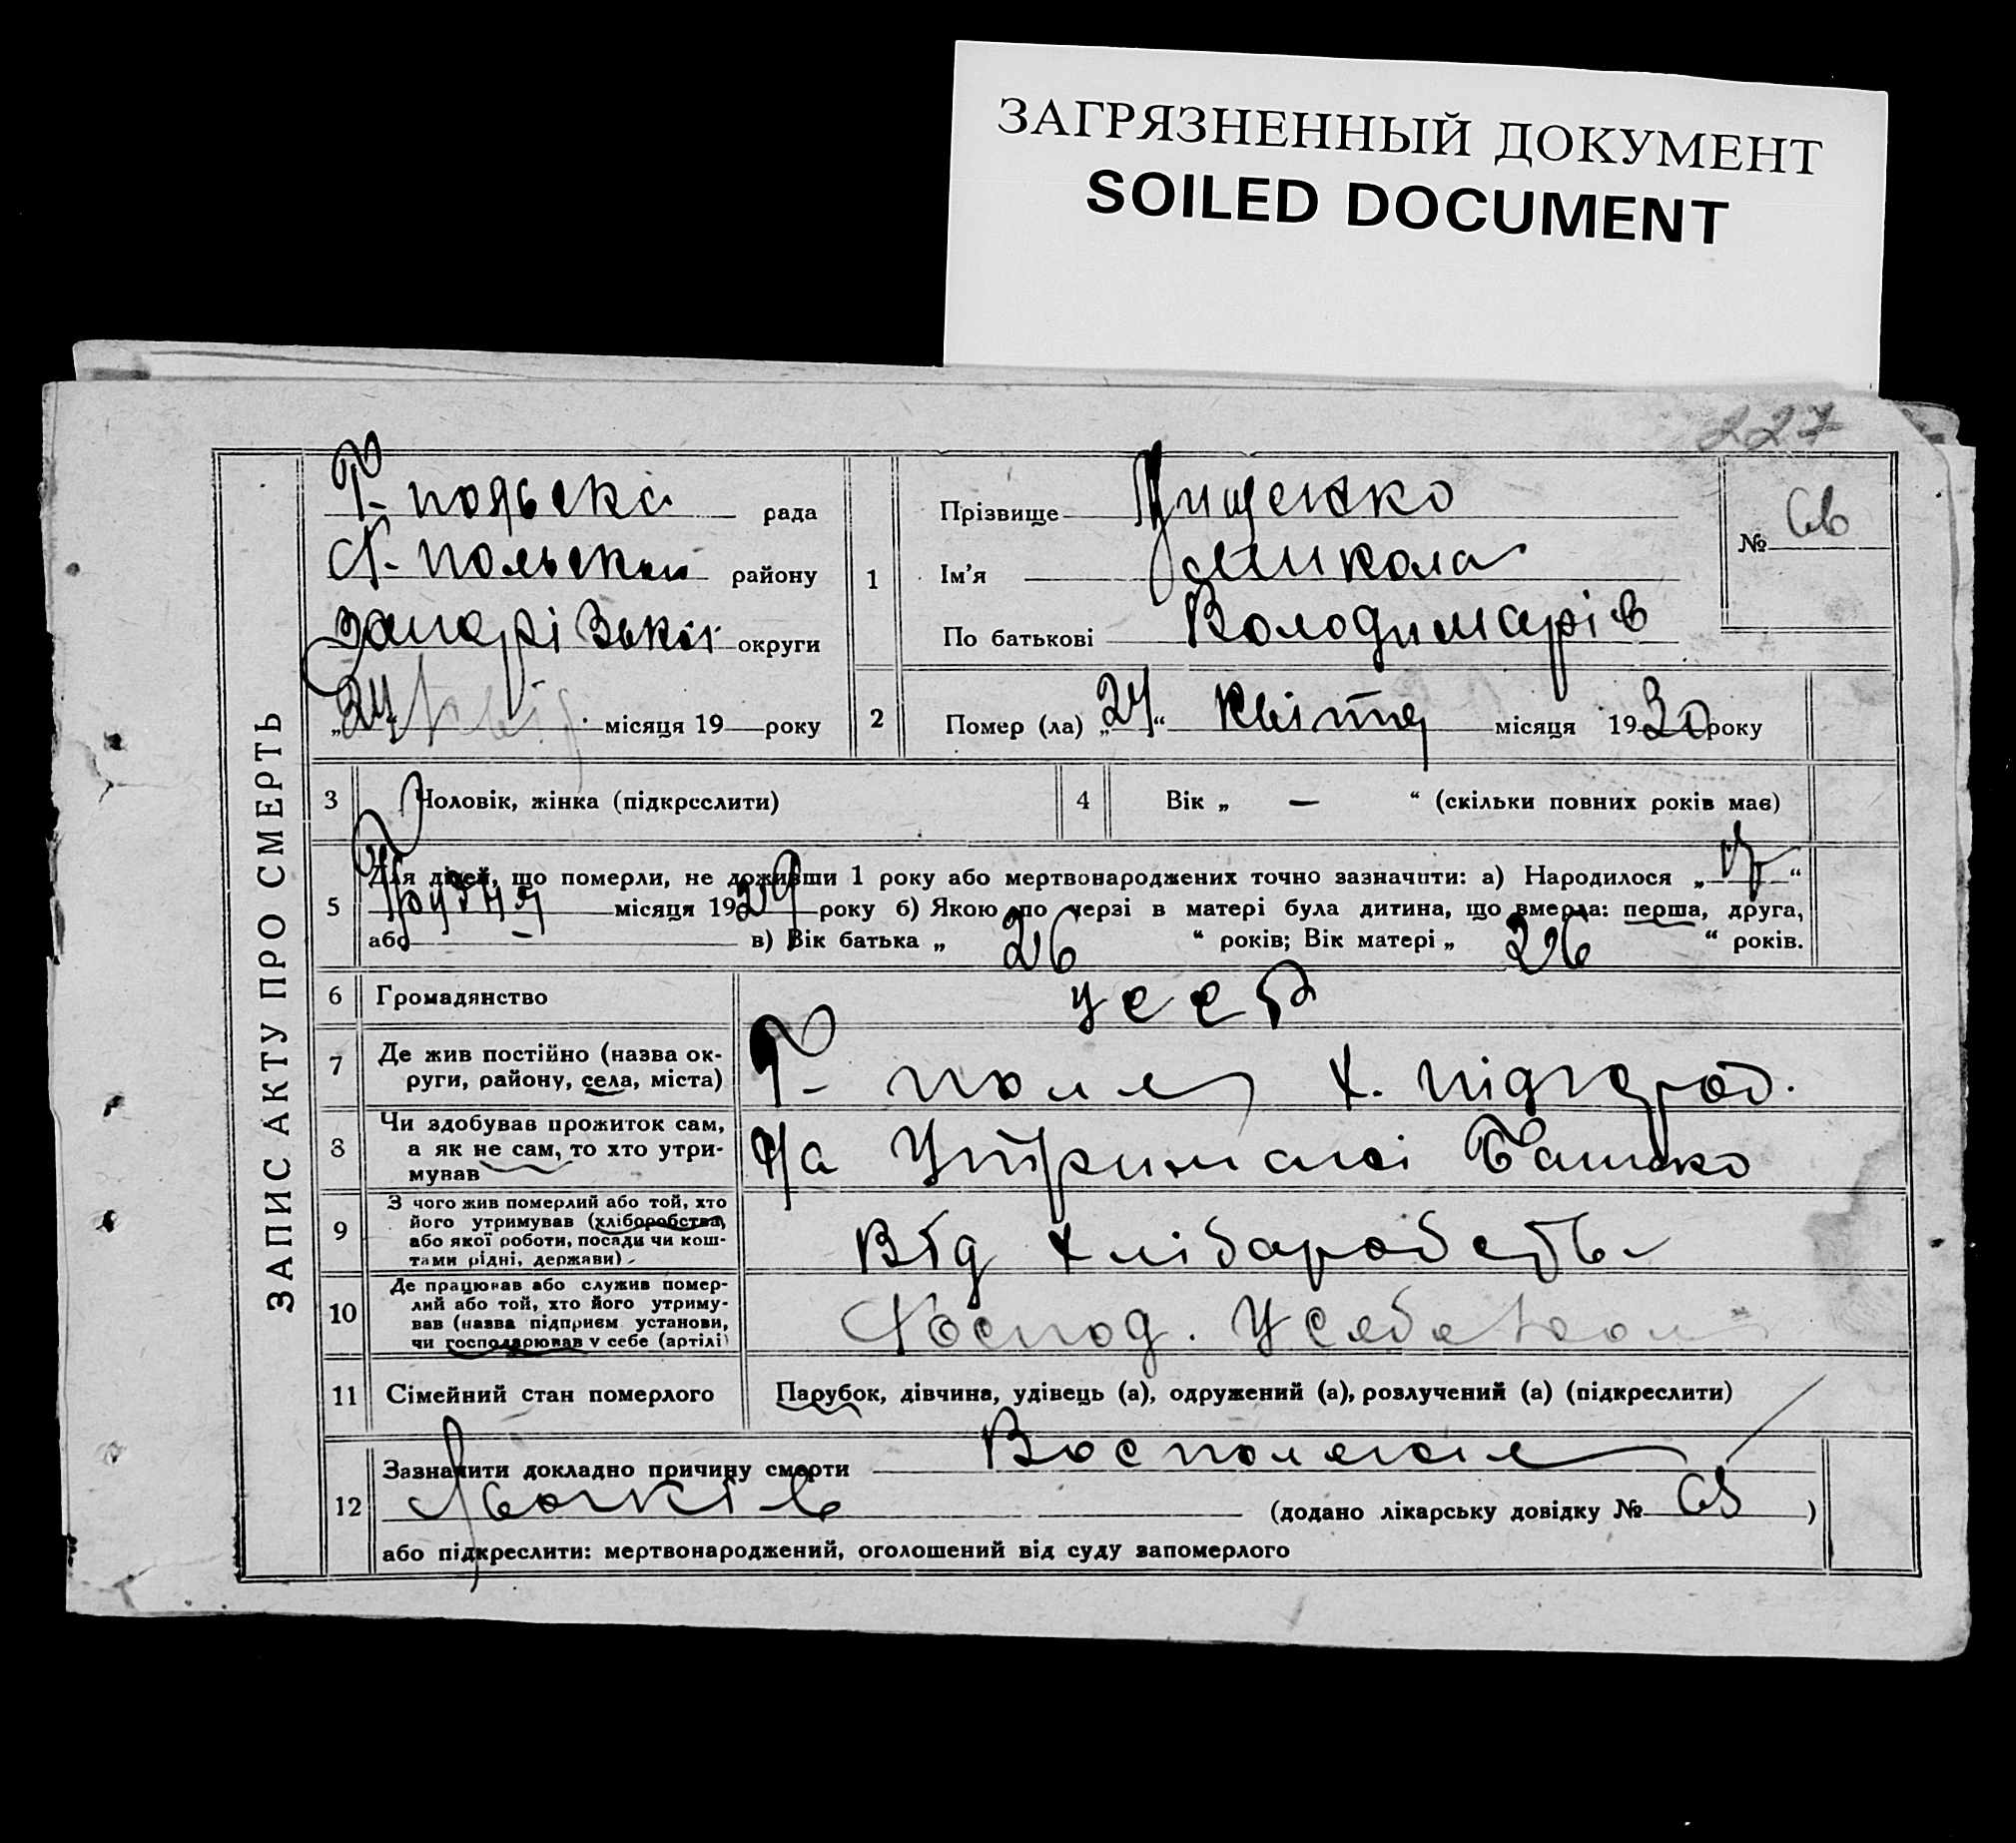 ЗАГРЯЗНЕННЫЙ ДОКУМЕНТ
SOILED DOCUMENT
227
ЗАПИС АКТУ ПРО СМЕРТЬ
рада
Г-польськ району
Запорізької округи
„24 квіт місяця 19 року
1
Прізвище
Ім'я Микола
По батькові Володимирів
№
2
Помер (ла) „24“ квітня місяця 1930 року
3 Чоловік, жінка (підкреслити)
4 Вік „ — “ (скільки повних років має)
5 Для дітей, що померли, не доживши 1 року або мертвонароджених точно зазначити: а) Народилося „ “
Грудня місяця 1929 року б) Якою по черзі в матері була дитина, що вмерла: перша, друга,
або в) Вік батька „ 26 “ років; Вік матері „ 26 “ років.
6 Громадянство УССР
7 Де жив постійно (назва ок-
руги, району, села, міста)
Г- поле х. Підгород.
8 Чи здобував прожиток сам,
а як не сам, то хто утри-
мував
На Утриманні Батько
9 З чого жив померлий або той, хто
його утримував (хліборобства,
або якої роботи, посади чи кош-
тами рідні, держави)
Від хліборобства
10 Де працював або служив помер-
лий або той, хто його утриму-
вав (назва підприєм установи,
чи господарював у себе (артілі)
Господ. У себе
11 Сімейний стан померлого Парубок, дівчина, удівець (а), одружений (а), розлучений (а) (підкреслити)
12 Зазначити докладно причину смерти Восполение
(додано лікарську довідку № )
або підкреслити: мертвонароджений, оголошений від суду запомерлого